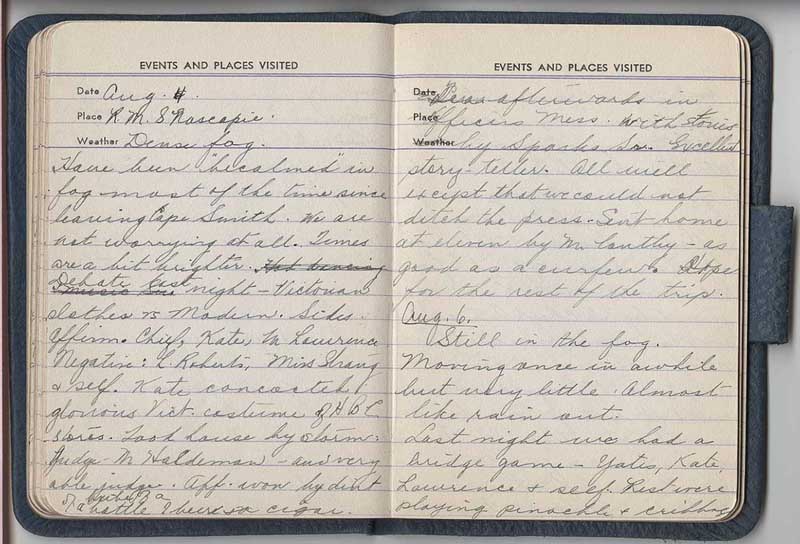 EVENTS AND PLACES VISITED
Date Aug. 4.
Place R.M.S Nascopie.
Weather Dense fog.
Have been "becalmed" in
fog most of the time since
leaving Cape Smith. We are
not worrying at all. Times
are a bit brighter. Hot dancing
Debate last
night - Victorian
clothes vs Modern. Sides
Affirm. Chief, Kate, M Lawrence
Negative: L Roberts, Miss Strang
& self. Kate concocted
glorious Vict. costume of H B C
stores. Took house by storm.
Judge - M Haldeman - and very
able judge. Aff. won by dint
of a bribe
battle cigar.
EVENTS AND PLACES VISITED
Date afterwards in
Place Officers Mess. With stories
Weather by Sparks Sr. Excellent
story-teller. All well
except that we could not
ditch the press. Sent home
at eleven by M Canthy - as
good as a curfew. Dope
for the rest of the trip.
Aug. 6.
Still in the fog.
Moving once in awhile
but very little. Almost
like rain out.
Last night we had a
bridge game - Yates, Kate,
Lawrence & self. Rest were
playing pinochle & cribbage